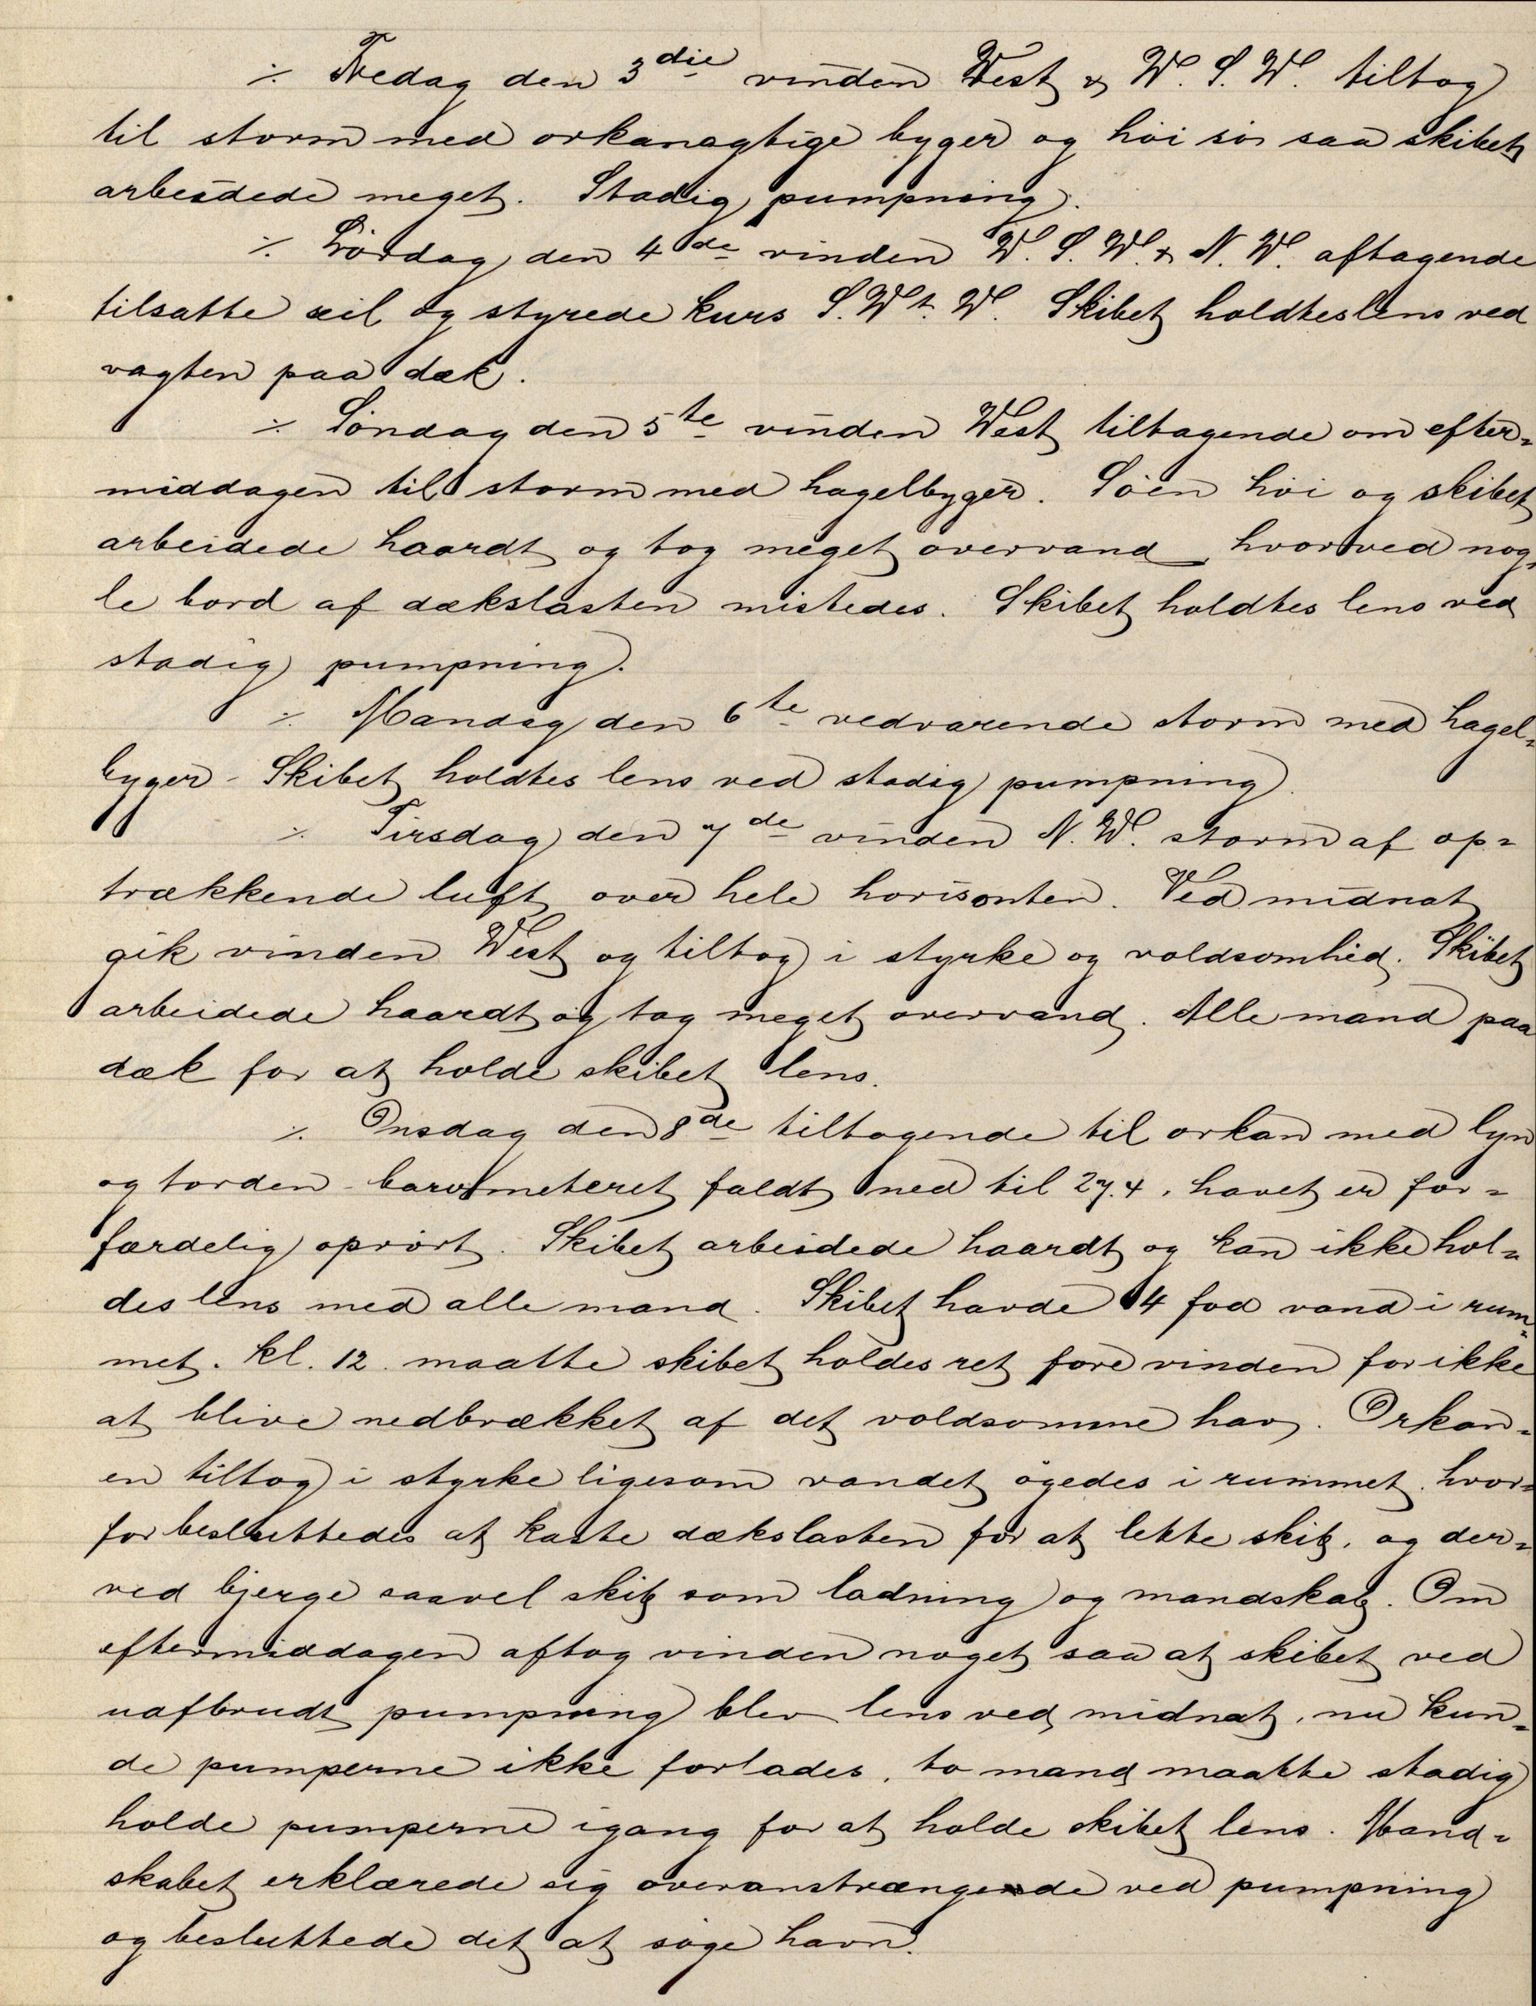 ⁒ Fredag den 3die vinden West & W. S. W. tiltog
til storm med orkanagtige byger og höi sö saa skibet
arbeidede meget. Stadig pumpning.
⁒ Lördag den 4de vinden W. S. W. & N. W. aftagende
tilsatte seil og styrede kurs S. W t. W. Skibet holdtes lens ved
vagten paa dæk.
⁒ Söndag den 5te vinden West tiltagende om efter=
middagen til storm med hagelbyger. Söen höi og skibet
arbeidede haardt og tog meget overvand, hvorved nog=
le bord af dækslasten mistedes. Skibet holdtes lens ved
stadig pumpning.
⁒ Mandag den 6te vedvarende storm med hagel=
byger - Skibet holdtes lens ved stadig pumpning.
⁒ Tirsdag den 7de vinden N. W. storm af op=
trækkende luft over hele horisonten. Ved midnat
gik vinden West og tiltog i styrke og voldsomhed. Skibet
arbeidede haardt og tog meget overvand. Alle mand paa
dæk for at holde skibet lens.
⁒ Onsdag den 8de tiltagende til orkan med lyn
og torden - barometeret faldt ned til 27.4, havet er for=
færdelig oprört. Skibet arbeidede haardt og kan ikke hol=
des lens med alle mand. Skibet havde 4 fod vand i rum=
met. kl. 12 maatte skibet holdes ret fore vinden for ikke
at blive nedbrækket af det voldsomme hav. Orkan=
en tiltog i styrke ligesom vandet ögedes i rummet. hvor=
for besluttedes at kaste dækslasten for at lette skib, og der=
ved bjerge saavel skib som ladning og mandskab. Om
eftermiddagen aftog vinden noget saa at skibet ved
uafbrudt pumpning blev lens ved midnat, nu kun=
de pumperne ikke forlades, to mand maatte stadig
holde pumperne igang for at holde skibet lens. Mand=
skabet erklærede sig overanstrængende ved pumpning
og besluttede det at söge havn.